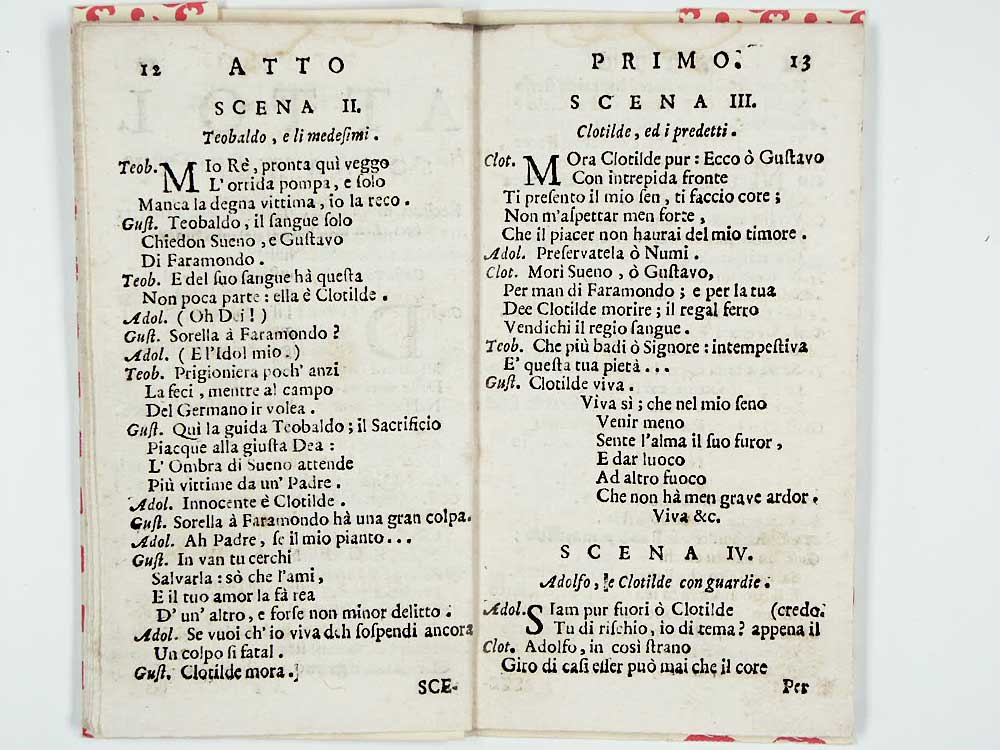 12 ATTO
SCENA II.
Teobaldo, e li medesimi.
Teob. MIo Rè, pronta quì veggo
L'orrida pompa, e solo
Manca la degna vittima, io la reco.
Gust. Teobaldo, il sangue solo
Chiedon Sueno, e Gustavo
Di Faramondo.
Teob. E del suo sangue hà questa
Non poca parte: ella è Clotilde.
Adol. (Oh Dei!)
Gust. Sorella à Faramondo?
Adol. (E l'Idol mio.)
Teob. Prigioniera poch' anzi
La feci, mentre al campo
Del Germano ir volea.
Gust. Quì la guida Teobaldo; il Sacrificio
Piacque alla giusta Dea:
L'Ombra di Sueno attende
Più vittime da un' Padre.
Adol. Innocente è Clotilde.
Gust. Sorella à Faramondo hà una gran colpa.
Adol. Ah Padre, se il mio pianto...
Gust. In van tu cerchi
Salvarla: sò che l'ami,
E il tuo amor la fà rea
D' un' altro, e forse non minor delitto.
Adol. Se vuoi ch' io viva deh sospendi ancora
Un colpo sì fatal.
Gust. Clotilde mora.
SCE-
PRIMO. 13
SCENA III.
Clotilde, ed i predetti.
Clot. MOra Clotilde pur: Ecco ò Gustavo
Con intrepida fronte
Ti presento il mio sen, ti faccio core;
Non m'aspettar men forte,
Che il piacer non haurai del mio timore.
Adol. Preservatela ò Numi.
Clot. Morì Sueno, ò Gustavo,
Per man di Faramondo; e per la tua
Dee Clotilde morire; il regal ferro
Vendichi il regio sangue.
Teob. Che più badi ò Signore: intempestiva
E' questa tua pietà...
Gust. Clotilde viva.
Viva sì; che nel mio seno
Venir meno
Sente l'alma il suo furor,
E dar luoco
Ad altro fuoco
Che non hà men grave ardor.
Viva &c.
SCENA IV.
Adolfo, e Clotilde con guardie.
Adol. SIam pur fuori ò Clotilde (credo.
Tu di rischio, io di tema? appena il
Clot. Adolfo, in così strano
Giro di casi esser può mai che il core
Per